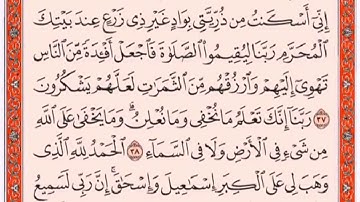 إِنِّي أَسْكَنتُ مِن ذُرِّيَّتِي بِوَادٍ غَيْرِ ذِي زَرْعٍ عِندَ بَيْتِكَ
الْمُحَرَّمِ رَبَّنَا لِيُقِيمُوا۟ الصَّلَوٰةَ فَاجْعَلْ أَفْـِٔدَةً مِّنَ النَّاسِ
تَهْوِىٓ إِلَيْهِمْ وَارْزُقْهُم مِّنَ الثَّمَرَٰتِ لَعَلَّهُمْ يَشْكُرُونَ
٣٧ رَبَّنَآ إِنَّكَ تَعْلَمُ مَا نُخْفِى وَمَا نُعْلِنُ ۗ وَمَا يَخْفَىٰ عَلَى اللَّهِ
مِن شَىْءٍ فِى الْأَرْضِ وَلَا فِى السَّمَآءِ ٣٨ الْحَمْدُ لِلَّهِ الَّذِى
وَهَبَ لِى عَلَى الْكِبَرِ إِسْمَٰعِيلَ وَإِسْحَٰقَ ۚ إِنَّ رَبِّى لَسَمِيعُ